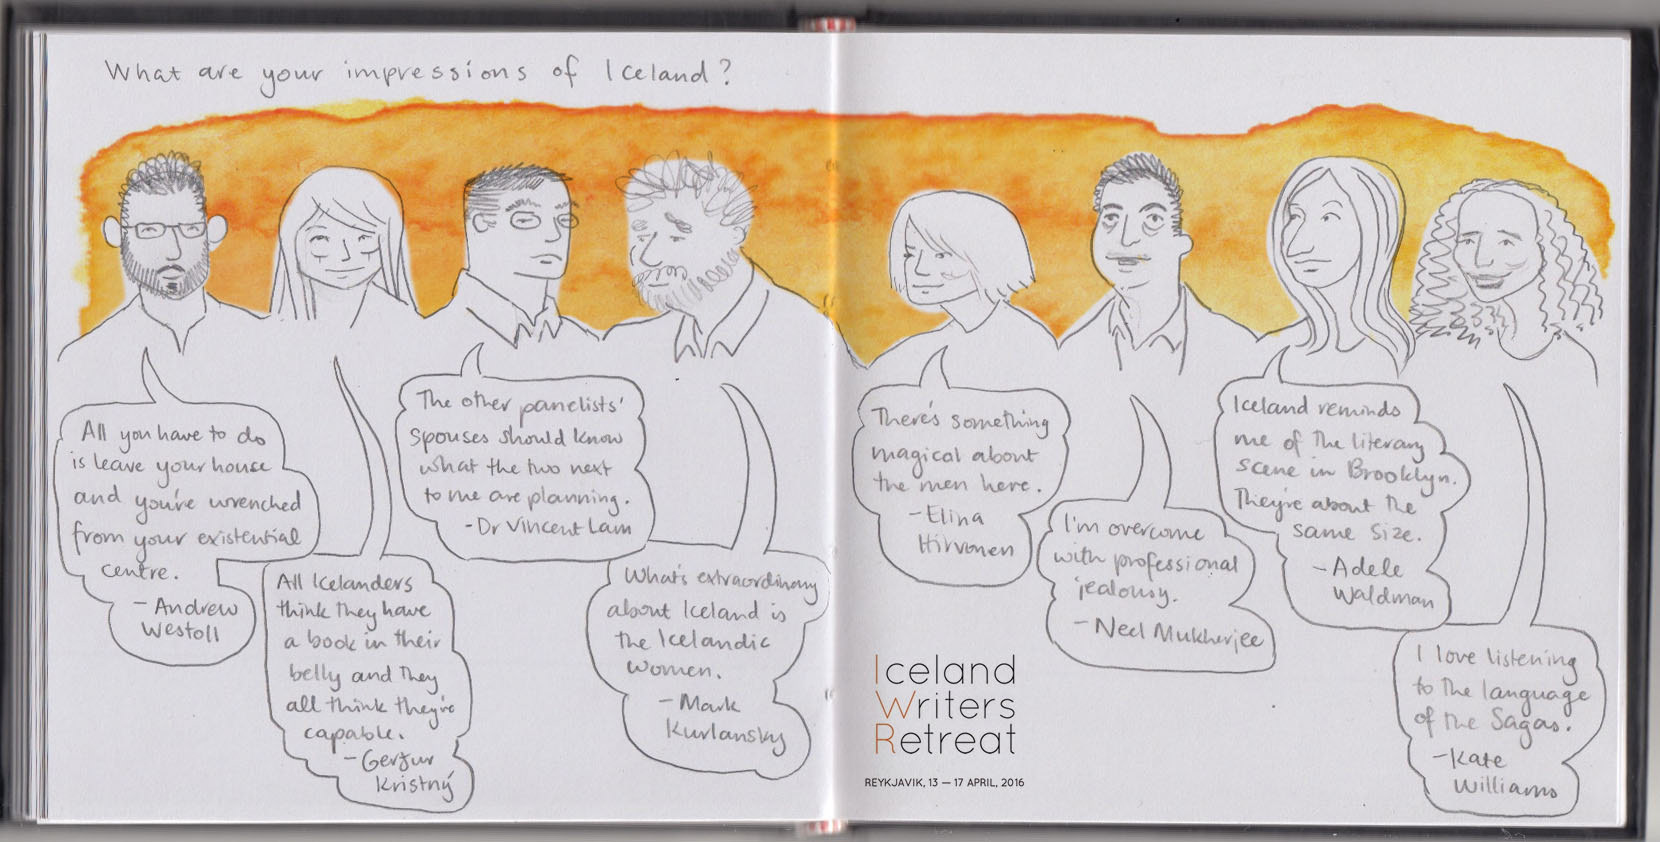 What are your impressions of Iceland?
All you have to do
is leave your house
and you're wrenched
from your existential
centre.
- Andrew
Westoll
All Icelanders
think they have
a book in their
belly and they
all think they're
capable.
- Gerður
Kristný
The other panelists'
spouses should know
what the two next
to me are planning.
- Dr Vincent Lam
What's extraordinary
about Iceland is
the Icelandic
women.
- Mark
Kurlansky
There's something
magical about
the men here.
- Elina
Hirvonen
I'm overcome
with professional
jealousy.
- Neel Mukherjee
Iceland reminds
me of the literary
scene in Brooklyn.
They're about the
same size.
- Adele
Waldman
I love listening
to the language
of the Sagas.
- Kate
Williams
Iceland
Writers
Retreat
REYKJAVIK, 13 — 17 APRIL, 2016